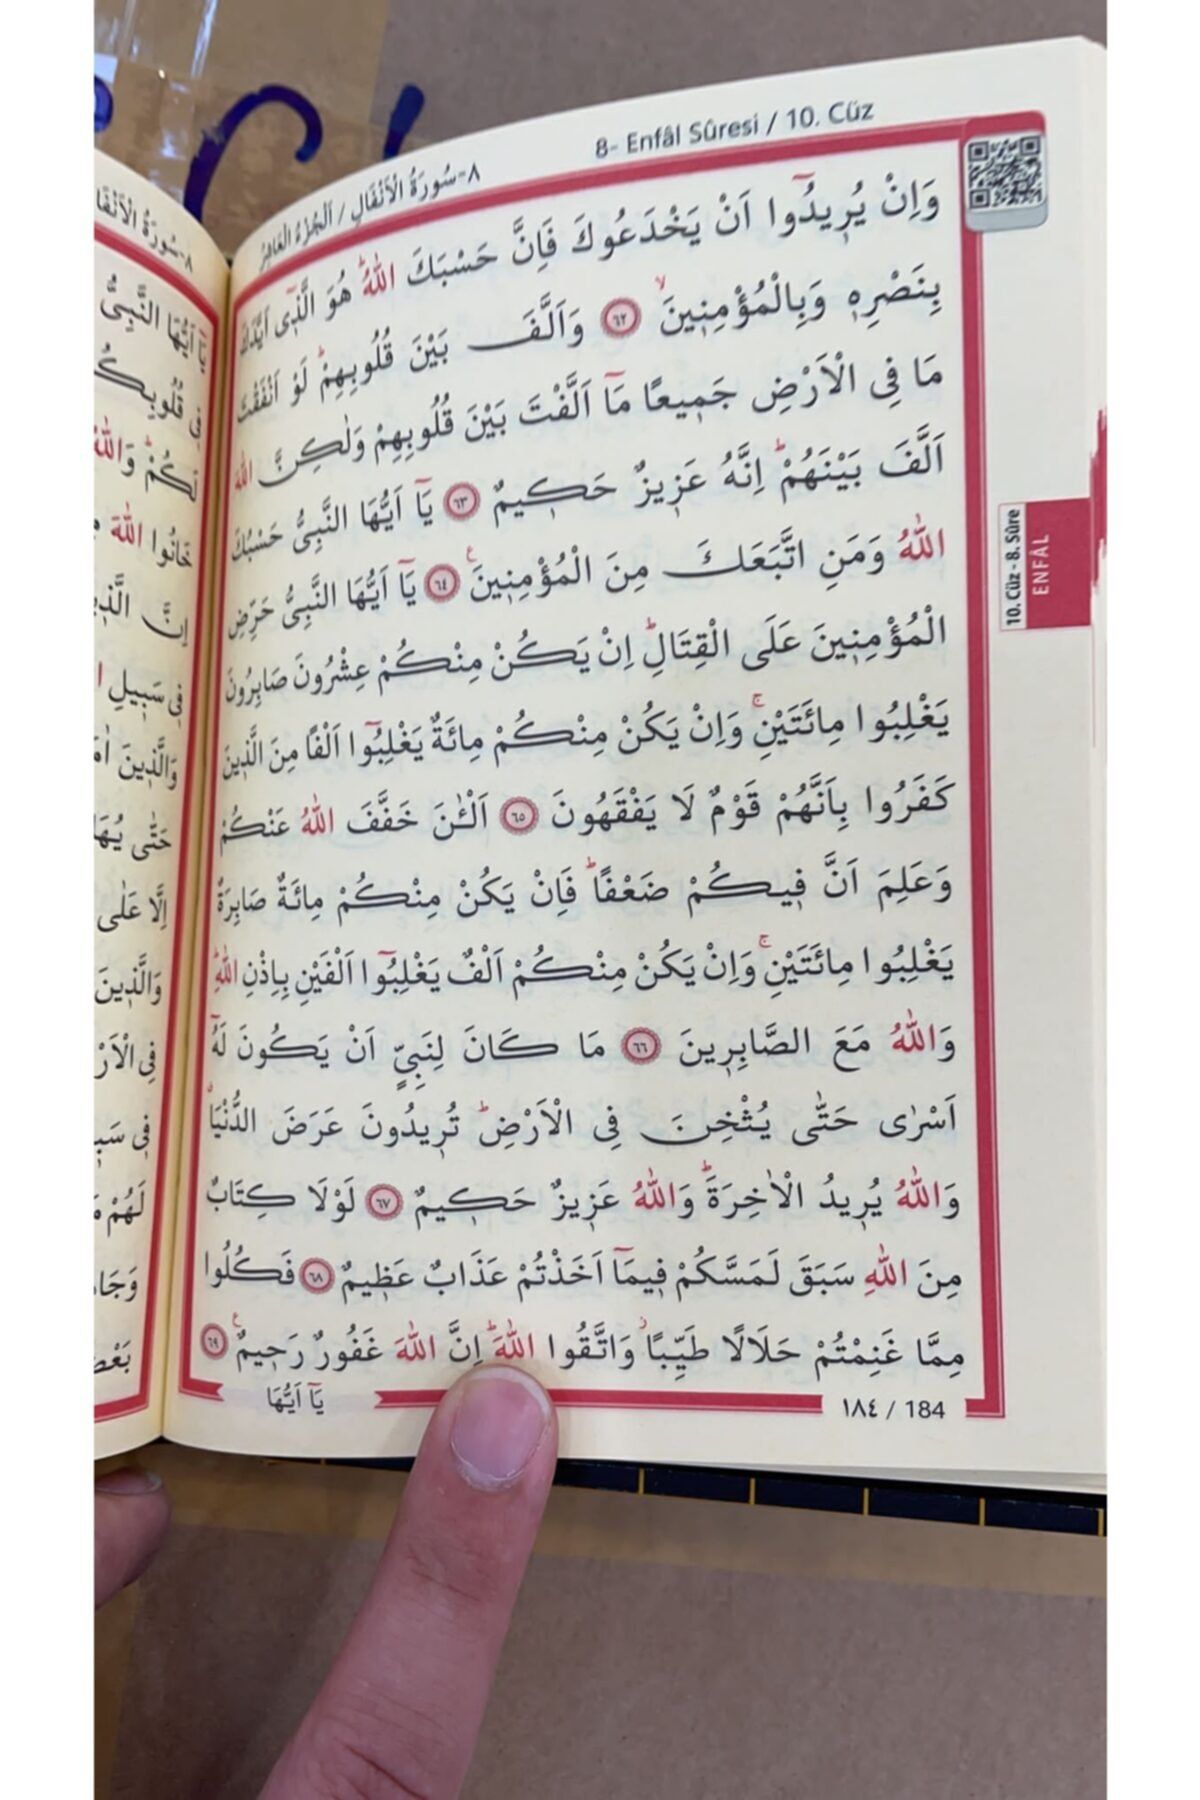 8- Enfâl Sûresi / 10. Cüz
٨-سُورَةُ الْاَنْفَالِ / اَلْجُزْءُ الْعَاشِرُ
وَاِنْ يُرِيدُٓوا اَنْ يَخْدَعُوكَ فَاِنَّ حَسْبَكَ اللّٰهُۜ هُوَ الَّذ۪ٓي اَيَّدَكَ
بِنَصْرِه۪ وَبِالْمُؤْمِن۪ينَۙ ﴿٦٢﴾ وَاَلَّفَ بَيْنَ قُلُوبِهِمْۜ لَوْ اَنْفَقْتَ
مَا فِي الْاَرْضِ جَم۪يعًا مَٓا اَلَّفْتَ بَيْنَ قُلُوبِهِمْ وَلٰكِنَّ اللّٰهَ
اَلَّفَ بَيْنَهُمْۜ اِنَّهُ عَز۪يزٌ حَك۪يمٌ ﴿٦٣﴾ يَٓا اَيُّهَا النَّبِيُّ حَسْبُكَ
اللّٰهُ وَمَنِ اتَّبَعَكَ مِنَ الْمُؤْمِن۪ينَ۟ ﴿٦٤﴾ يَٓا اَيُّهَا النَّبِيُّ حَرِّضِ
الْمُؤْمِن۪ينَ عَلَى الْقِتَالِۜ اِنْ يَكُنْ مِنْكُمْ عِشْرُونَ صَابِرُونَ
يَغْلِبُوا مِائَتَيْنِۚ وَاِنْ يَكُنْ مِنْكُمْ مِائَةٌ يَغْلِبُٓوا اَلْفًا مِنَ الَّذ۪ينَ
كَفَرُوا بِاَنَّهُمْ قَوْمٌ لَا يَفْقَهُونَ ﴿٦٥﴾ اَلْـٰٔنَ خَفَّفَ اللّٰهُ عَنْكُمْ
وَعَلِمَ اَنَّ ف۪يكُمْ ضَعْفًاۜ فَاِنْ يَكُنْ مِنْكُمْ مِائَةٌ صَابِرَةٌ
يَغْلِبُوا مِائَتَيْنِۚ وَاِنْ يَكُنْ مِنْكُمْ اَلْفٌ يَغْلِبُٓوا اَلْفَيْنِ بِاِذْنِ اللّٰهِۜ
وَاللّٰهُ مَعَ الصَّابِر۪ينَ ﴿٦٦﴾ مَا كَانَ لِنَبِيٍّ اَنْ يَكُونَ لَهُٓ
اَسْرٰى حَتّٰى يُثْخِنَ فِي الْاَرْضِۜ تُر۪يدُونَ عَرَضَ الدُّنْيَاۗ
وَاللّٰهُ يُر۪يدُ الْاٰخِرَةَۜ وَاللّٰهُ عَز۪يزٌ حَك۪يمٌ ﴿٦٧﴾ لَوْلَا كِتَابٌ
مِنَ اللّٰهِ سَبَقَ لَمَسَّكُمْ ف۪يمَٓا اَخَذْتُمْ عَذَابٌ عَظ۪يمٌ ﴿٦٨﴾ فَكُلُوا
مِمَّا غَنِمْتُمْ حَلَالًا طَيِّبًاۘ وَاتَّقُوا اللّٰهَۜ اِنَّ اللّٰهَ غَفُورٌ رَح۪يمٌ۟ ﴿٦٩﴾
يَٓا اَيُّهَا
١٨٤ / 184
10. Cüz - 8. Sûre
ENFÂL